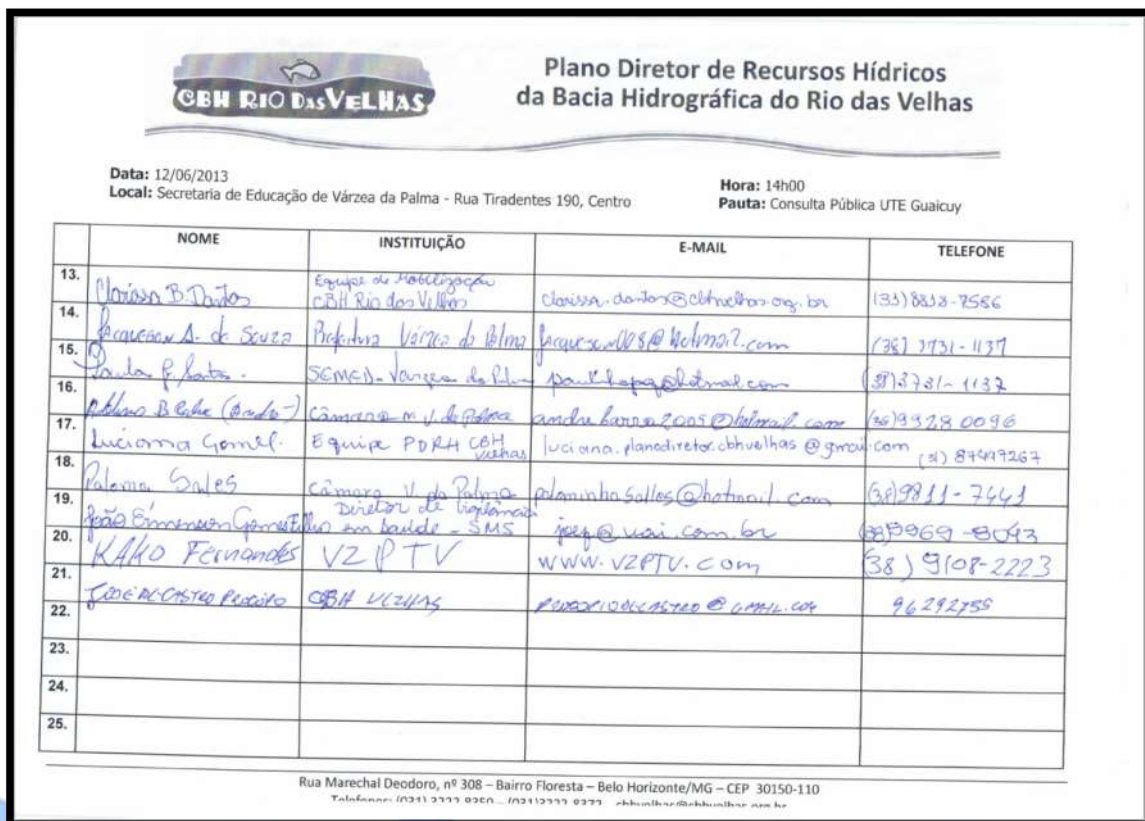 CBH RIO DAS VELHAS
Plano Diretor de Recursos Hídricos
da Bacia Hidrográfica do Rio das Velhas
Data: 12/06/2013
Local: Secretaria de Educação de Várzea da Palma - Rua Tiradentes 190, Centro
Hora: 14h00
Pauta: Consulta Pública UTE Guaicuy
NOME INSTITUIÇÃO E-MAIL TELEFONE
13. Clarissa B. Dantas Equipe de Mobilização CBH Rio das Velhas clarissa.dantas@cbhvelhas.org.br (31) 8818-7586
14. A. de Souza Prefeitura Várzea da Palma (38) 3731-1137
15. Paula Santos. SEMED- Varzea da Palma (38) 3731-1137
16. (André) Câmara M. V. da Palma andrebarra2005@hotmail.com 9928 0096
17. Luciana Gomes. Equipe PDRH CBH Velhas luciana.planodiretor.cbhvelhas@gmail.com (31) 87497267
18. Paloma Sales Câmara V. da Palma palominhasalles@hotmail.com (38) 9811-7441
19. João Emmerson Gomes Filho Diretor de Vigilância em Saúde - SMS @uai.com.br
20. KAKO Fernandes VZPTV www.VZPTV.com (38) 9108-2223
21. CASTRO PROCÓPIO CBH VELHAS
22.
23.
24.
25.
Rua Marechal Deodoro, nº 308 – Bairro Floresta – Belo Horizonte/MG – CEP 30150-110
Telefones: (031) 3222-8350 – (031)3222-8372 - cbhvelhas@cbhvelhas.org.br